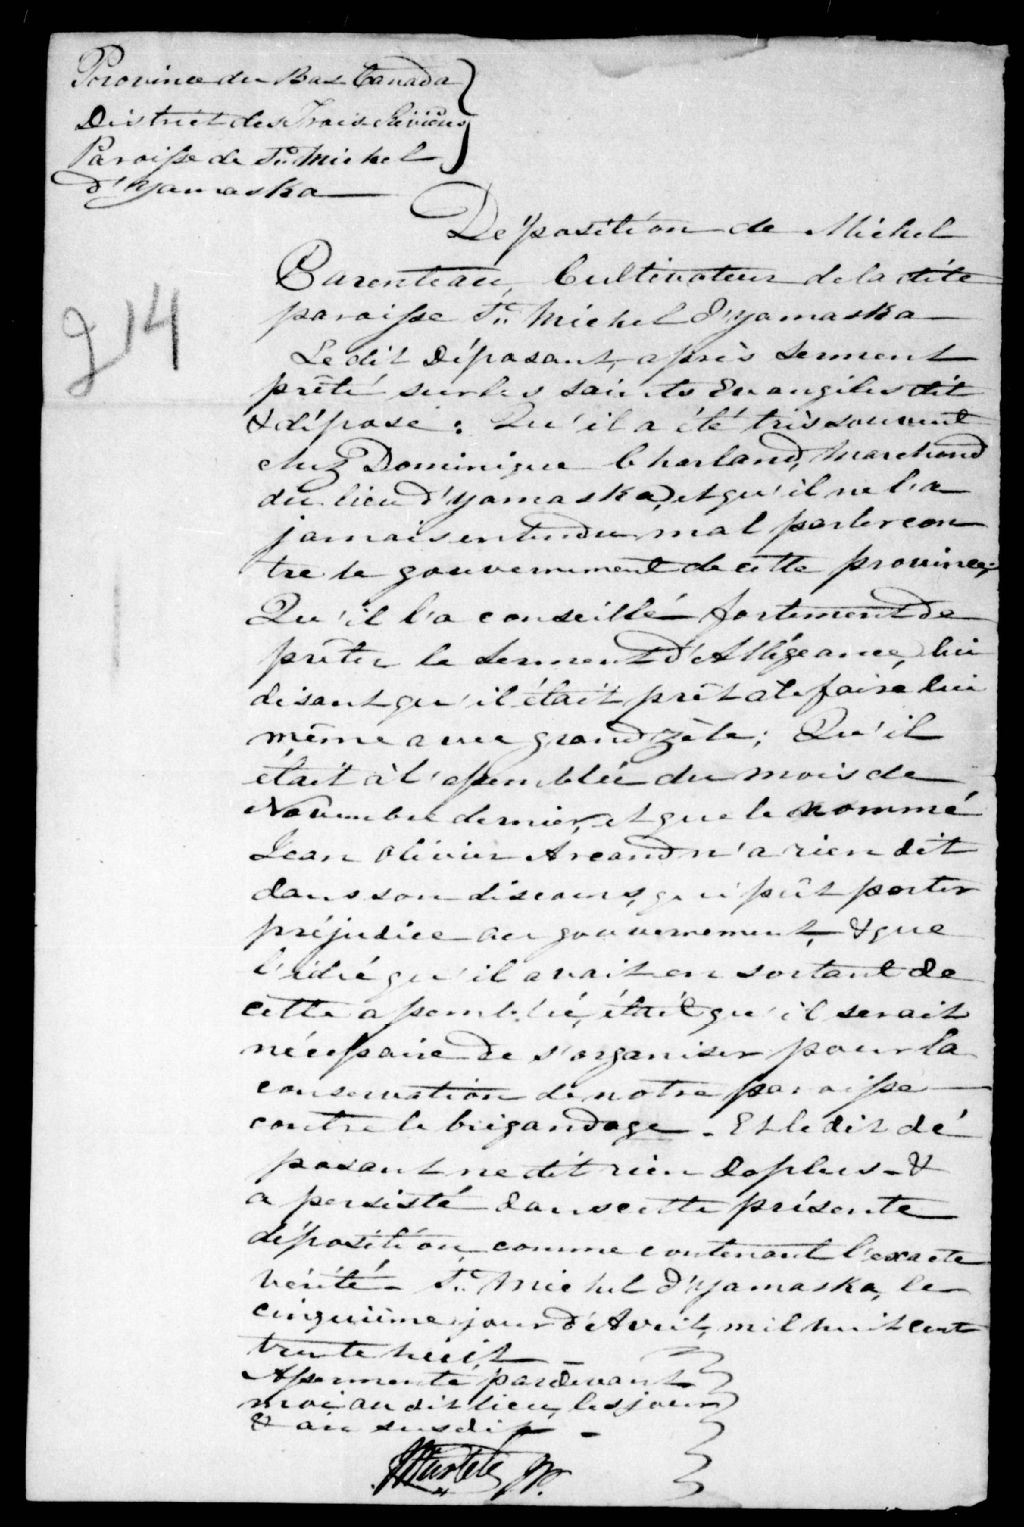 Province du Bas Canada
District des Trois Rivières
Paroisse de St. Michel
d'Yamaska
Déposition de Michel
Parenteau, Cultivateur de la dite
paroisse St. Michel d'Yamaska
214
Le dit Déposant, après serment
prêté sur les saints Evangiles dit
& dépose : Qu'il a été très souvent
chez Dominique Charland, Marchand
du lieu d'Yamaska, et qu'il ne l'a
jamais entendu mal parler con
tre le gouvernement de cette province;
Qu'il l'a conseillé fortement de
prêter le serment d'Allégeance, lui
disant qu'il était prêt à le faire lui
même avec grand zèle; Qu'il
était à l'assemblée du mois de
Novembre dernier, et que le nommé
Jean Olivier Arcand n'a rien dit
dans son discours, qui pût porter
préjudice au gouvernement, & que
l'idée qu'il avait en sortant de
cette assemblée, était qu'il serait
nécessaire de s'organiser pour la
conservation de notre paroisse
contre le brigandage. Et le dit dé
posant ne dit rien de plus - &
a persisté dans cette présente
déposition, comme contenant l'exacte
vérité - St. Michel d'Yamaska, le
cinquième jour d'Avril, mil huit cent
trente huit -
Assermenté pardevant
moi au dit lieu, les jour
& an susdit -
JP.